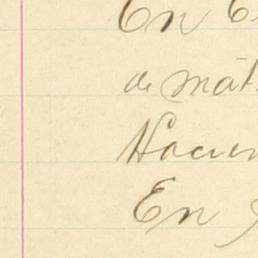 En
de mat
Hacien
En